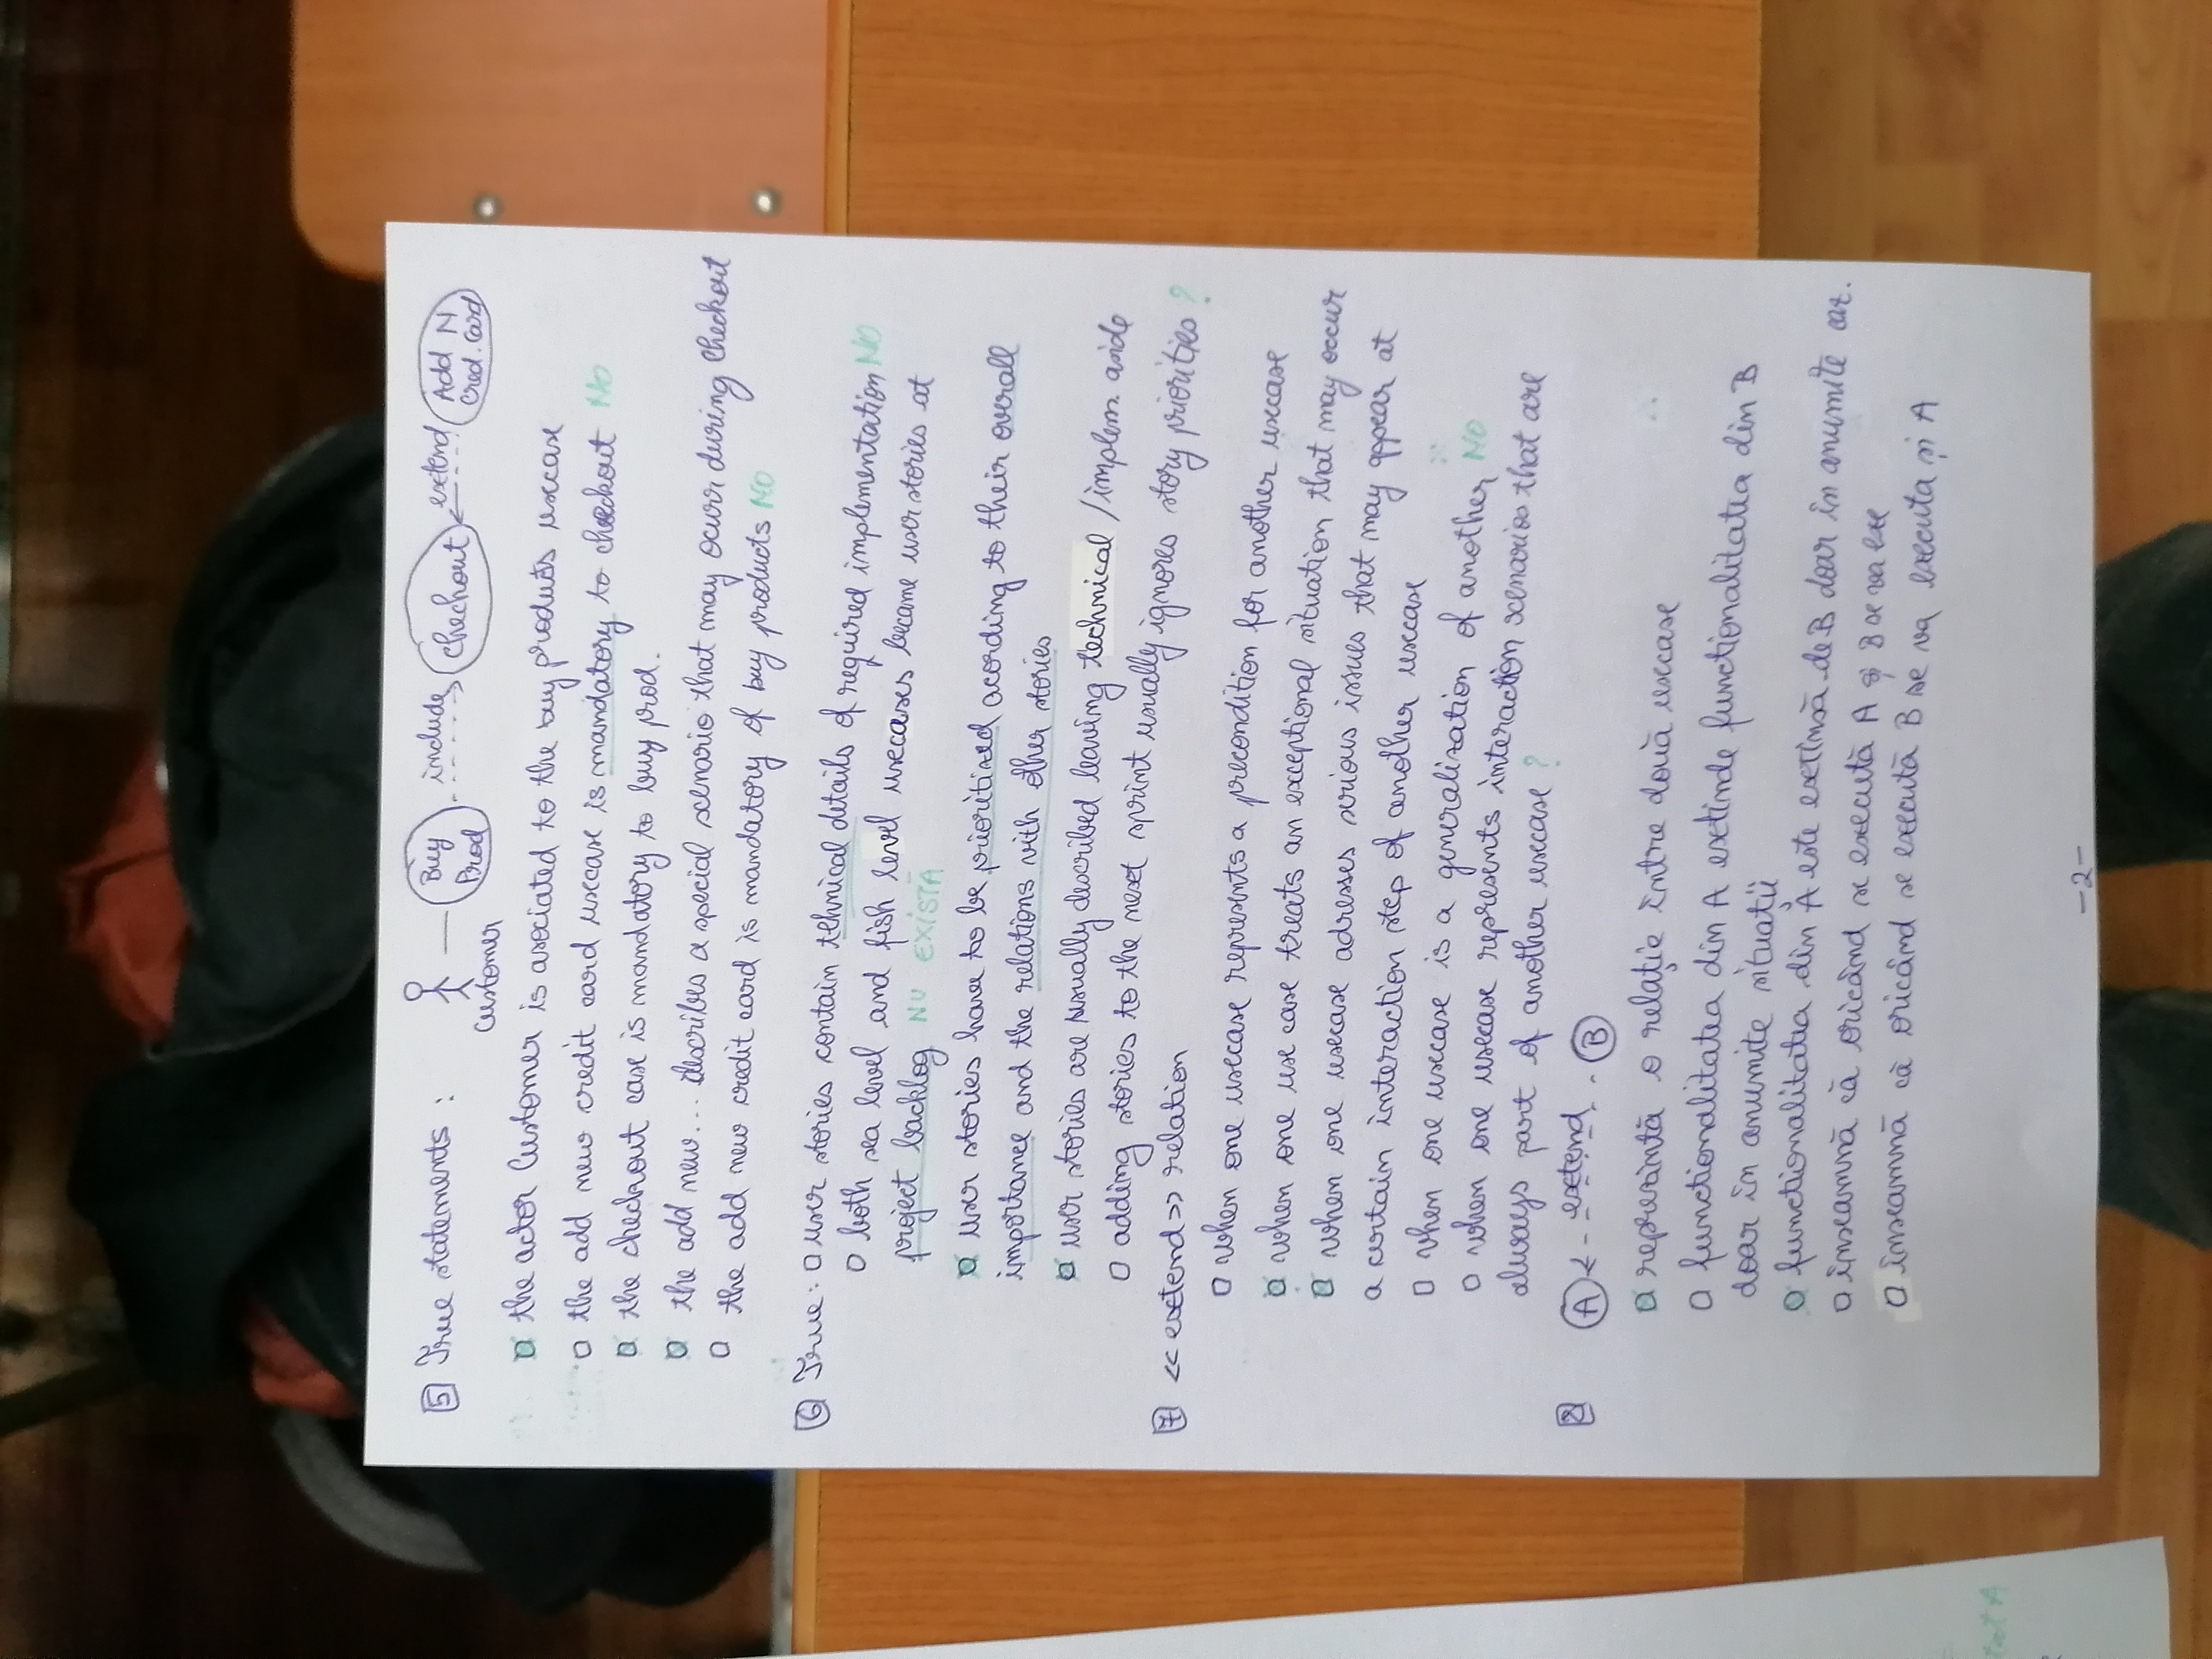 5 True statements :
Customer
Buy Prod
include
Checkout
extend
Add N cred. card
the actor Customer is associated to the buy products usecase
the add new credit card usecase is mandatory to checkout NO
the checkout case is mandatory to buy prod.
the add new... describes a special scenario that may occurr during checkout
the add new credit card is mandatory of buy products NO
6 True: user stories contain tehnical details of required implementation NO
both sea level and fish level usecases became user stories at
project backlog NU EXISTĂ
user stories have to be prioritised acording to their overall
importance and the relations with other stories
user stories are usually described leaving technical /implem aside
adding stories to the next sprint usually ignores story priorities ?
7 << extend >> relation
when one usecase represents a precondition for another usecase
when one use case treats an exceptional situation that may occur
when one usecase adresses serious issues that may appear at
a certain interaction step of another usecase
when one usecase is a generalization of another NO
when one usecase represents interaction scenarios that are
always part of another usecase ?
8 A <- - extend - - B
reprezintă o relație între două usecase
functionalitatea din A extinde functionalitatea din B
doar în anumite situatii
functionalitatea din A este extinsă de B doar în anumite caz.
înseamnă că oricând se execută A și B se va exe
înseamnă că oricând se execută B se va executa și A
-2-